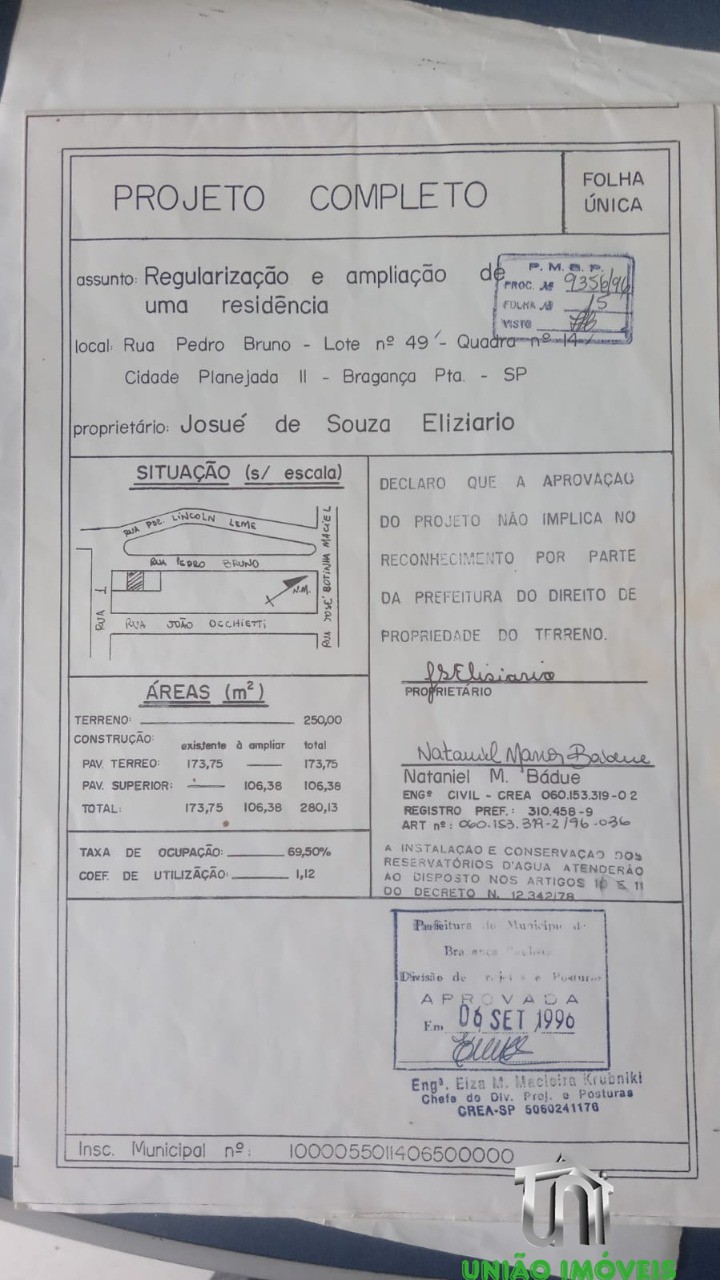 PROJETO COMPLETO
FOLHA
ÚNICA
assunto: Regularização e ampliação de
uma residência
P. M. B. P.
PROC. Nº 9356/96
FOLHA Nº 15
VISTO
local: Rua Pedro Bruno - Lote nº 49 - Quadra nº 14
Cidade Planejada II - Bragança Pta. - SP
proprietário: Josué de Souza Eliziario
SITUAÇÃO (s/ escala)
RUA LINCOLN LEME
RUA PEDRO BRUNO
RUA JOSÉ BOTINHA MACIEL
N.M.
RUA 1
RUA JOÃO OCCHIETTI
DECLARO QUE A APROVAÇAO
DO PROJETO NÃO IMPLICA NO
RECONHECIMENTO POR PARTE
DA PREFEITURA DO DIREITO DE
PROPRIEDADE DO TERRENO.
JSElisiario
PROPRIETÁRIO
ÁREAS (m²)
TERRENO: 250,00
CONSTRUÇÃO: existente à ampliar total
PAV. TERREO: 173,75 — 173,75
PAV. SUPERIOR: — 106,38 106,38
TOTAL: 173,75 106,38 280,13
TAXA DE OCUPAÇÃO: 69,50%
COEF. DE UTILIZAÇÃO: 1,12
Nataniel Bádue
Nataniel M. Bádue
ENGº CIVIL - CREA 060.153.319-02
REGISTRO PREF.: 310.458-9
ART nº: 060.153.319-2/96-036
A INSTALAÇAO E CONSERVAÇAO DOS
RESERVATÓRIOS D'AGUA ATENDERÃO
AO DISPOSTO NOS ARTIGOS 10 E 11
DO DECRETO N. 12.342/78
Prefeitura do Municipio de
Divisão de e Posturas
APROVADA
Em 06 SET 1996
Engª. Elza M. Macieira Krubniki
Chefe do Div. Proj. e Posturas
CREA-SP 5060241176
Insc. Municipal nº: 1000055011406500000
UNi
UNIÃO IMÓVEIS